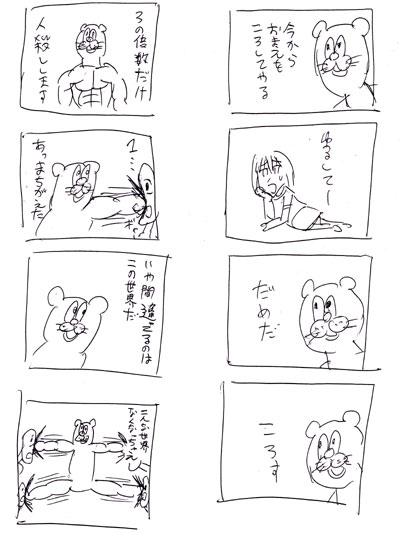 今から
おまえを
ころしてやる
ゆるしてー
だめだ
ころす
3の倍数だけ
人殺しします
1…
あっまちがえた
いや間違ってるのは
この世界だ
こんな世界
なくなっちゃえー